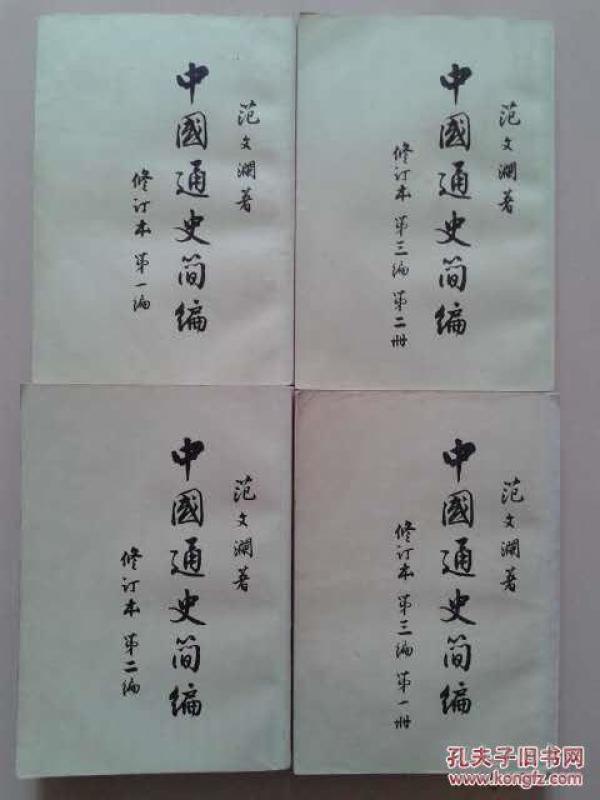 范文瀾著
中國通史简编
修订本 第一编
范文瀾著
中國通史简编
修订本 第三编 第二册
范文瀾著
中國通史简编
修订本 第二编
范文瀾著
中國通史简编
修订本 第三编 第一册
孔夫子旧书网
www.kongfz.com